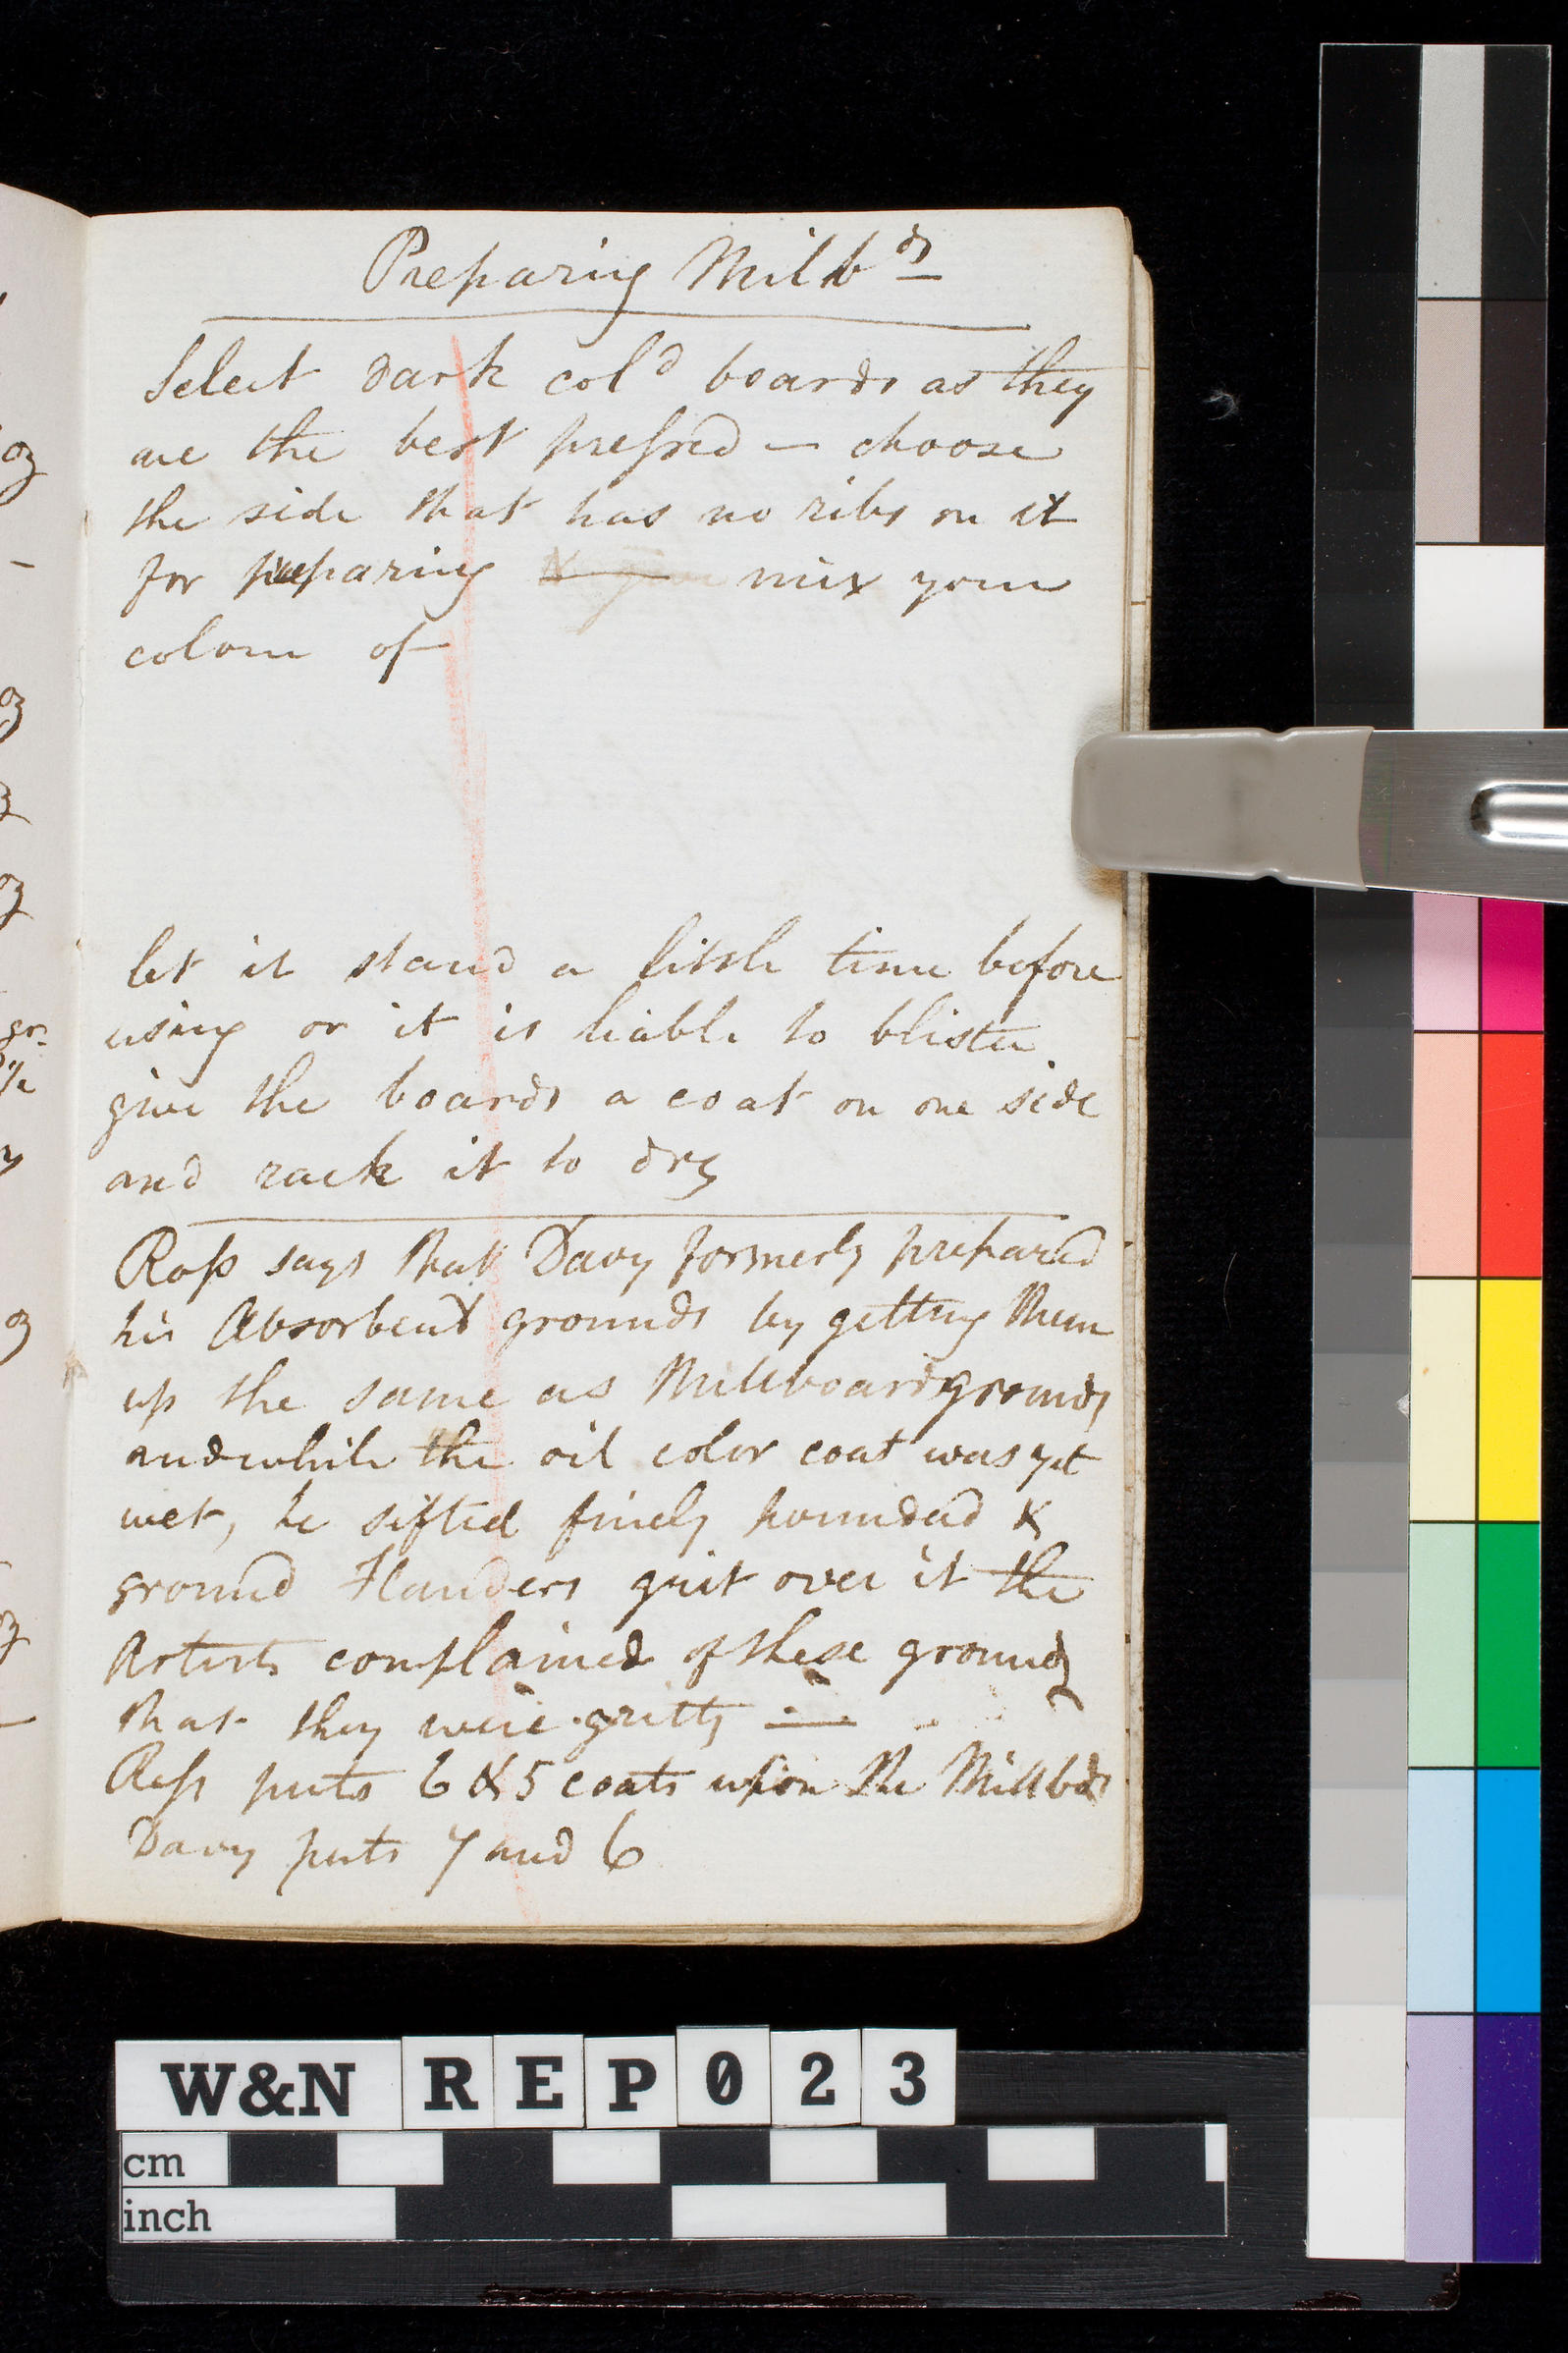 oz
oz
z
oz
gr.
oz
z
Preparing Millbds
Select dark cold boards as they
are the best pressed — choose
the side that has no ribs on it
for preparing & mix your
colour of
let it stand a little time before
using or it is liable to blister
give the boards a coat on one side
and rack it to dry
Ross says that Davy formerly prepared
his Absorbent grounds by getting them
up the same as Millboard grounds
and while the oil color coat was yet
wet, he sifted finely pounded &
ground Flanders grit over it the
Artists complained of these grounds
that they were gritty —
Ross puts 6 & 5 coats upon the Millbds
Davy puts 7 and 6
W&N REP023
cm
inch